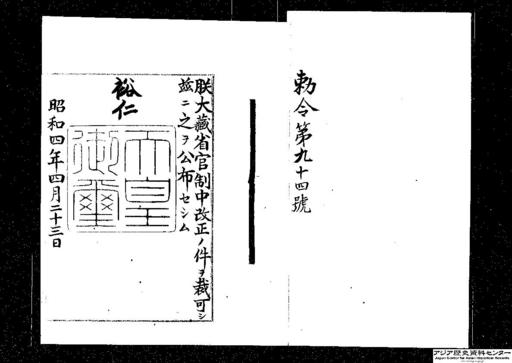 勅令第九十四號
朕大藏省官制中改正ノ件ヲ裁可シ
茲ニ之ヲ公布セシム
裕仁
天皇
御璽
昭和四年四月二十三日
アジア歴史資料センター
Japan Center for Asian Historical Records